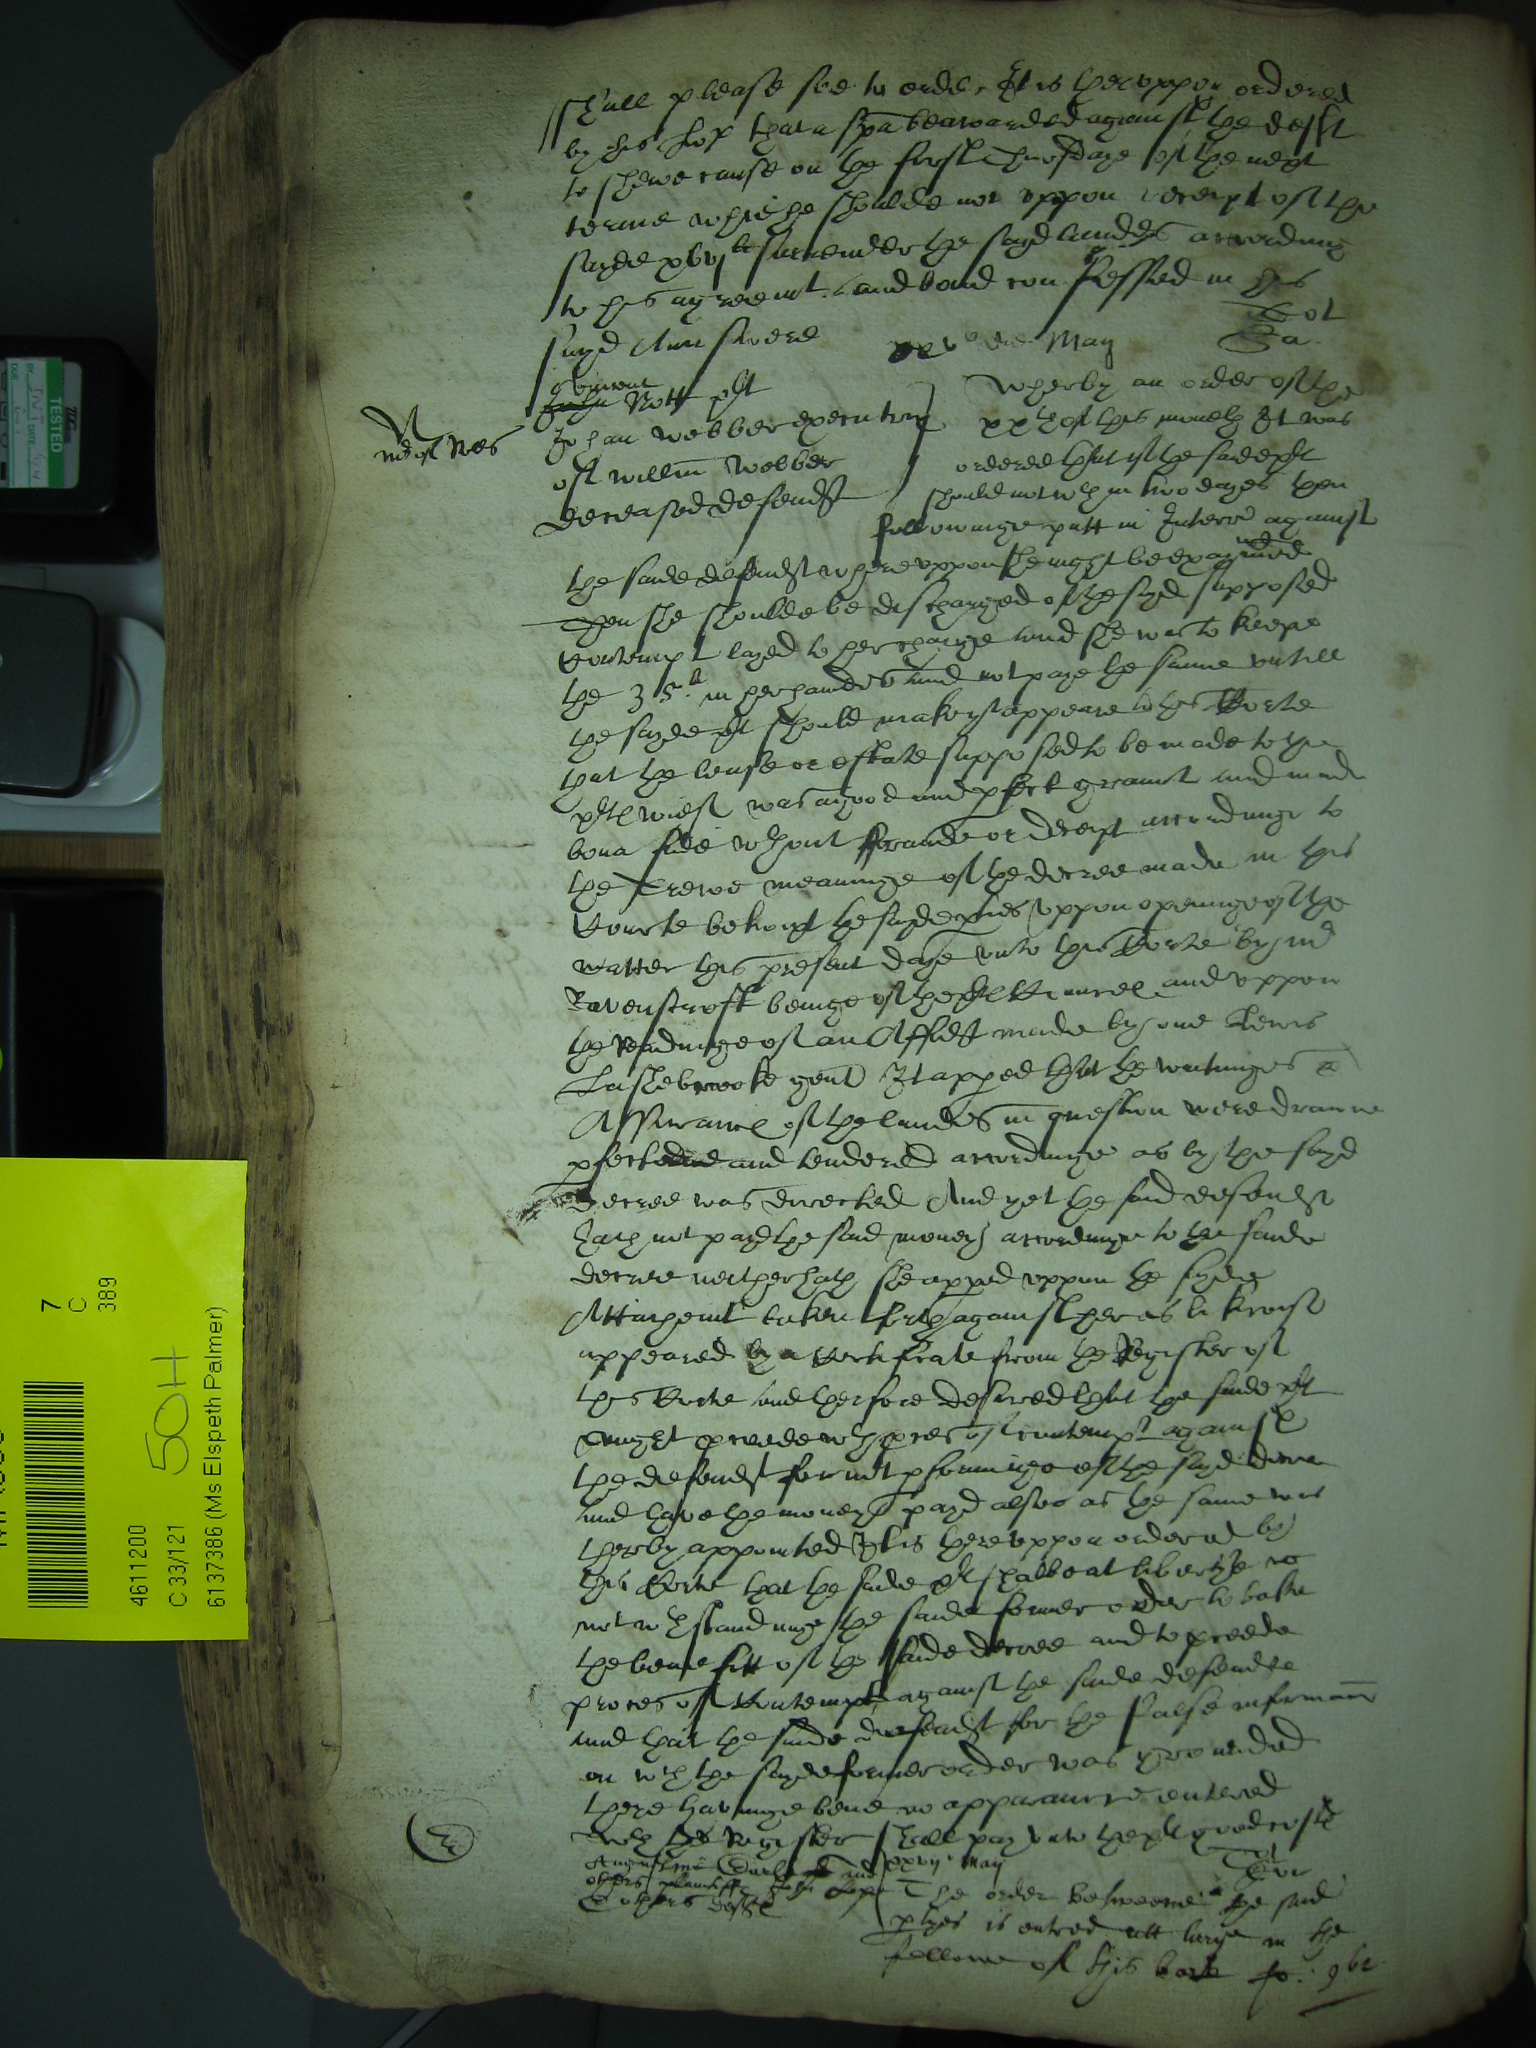 shall please soe to order. It is heruppon ordered
by his Lop that a spa be awarded against the deft
to shewe cause on the first Thursdaye of the next
terme why he shoulde not uppon receipt of the
sayde xlvjli surrender the sayd landes accordinge
to his agreemt and bond confessed in his
sayd Aunswere
xxvo die May
Nott plt
Johan Webber executrix
of Willm Webber
deceased defendt
Wherby an order of the
xxth of this moneth It was
ordered that if the saide plt
should not wthin two dayes then
followinge putt in Interr against
the saide defendt whereuppon she might be examined
Then she shoulde be discharged of the sayd supposed
Contempt layed to her charge and she was to keepe
the 35li in her handes and not paye the same untill
the sayde plt should make it appeare to this Corte
that the lease or estate supposed to be made to the
plt was a good and pfect graunt and made
bona fide wthout fraude or deceipt accordinge to
the trewe meaninge of the decree made in this
Courte betwixt the sayde pties Uppon openinge of the
matter this present daye unto this Corte by mr
Ravenscroft beinge of the plt Councel and uppon
the readinge of an Affidt made by one Lewis
Lashebrooke gent It apped that the writinges &
Assurance of the landes in question were drawne
pfected and tendered accordinge as by the sayd
decree was directed And yet the said defendt
hath not payd the said money accordinge to the saide
decree neither hath she apped uppon the sayde
Attachemt taken forth against her as likewise
appeared by a Certificate from the Register of
this Corte and therfore desired that the saide plt
might proceede wth proces of contempt against
the defendt for not pforminge of the sayd decree
and have the money payd alsoe as the same was
therby appointed It is hereuppon ordered by
this Corte that the saide plt shalbe at libertye
notwthstandinge the saide former order to take
the benefitt of the saide decree and to proceede
proces of Contempt against the saide defendte
and that the saide defendt for the false informacon
on wch the sayde former order was grounded
there havinge bene no apparaunce entered
wth the Register shall pay unto the plt good costs
Augustine and
others plaintiffs John
& others deftes
xxvij May
The order betweene the said
pties is entred att large in the
fellowe of this booke fo:
TESTED
7
C
389
4611200
C 33/121
50H
6137386 (Ms Elspeth Palmer)